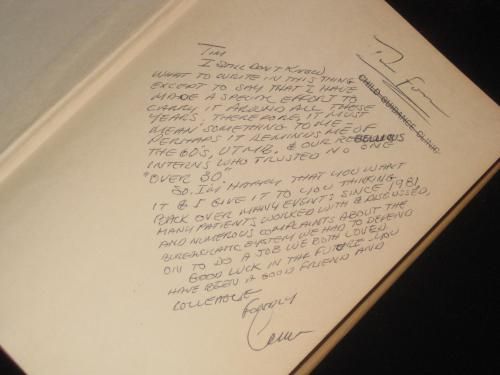 Tim
I STILL DON'T KNOW
WHAT TO WRITE IN THIS THING
EXCEPT TO SAY THAT I HAVE
MADE A SPECIAL EFFORT TO
CARRY IT AROUND ALL THESE
YEARS. THEREFORE, IT MUST
MEAN SOMETHING TO ME -
PERHAPS IT REMINDS ME OF
THE 60'S, UTMB, & OUR REBELLIOUS
INTERNS WHO TRUSTED NO ONE
"OVER 30."
SO, I'M HAPPY THAT YOU WANT
IT & I GIVE IT TO YOU THINKING
BACK OVER MANY EVENTS SINCE 1981,
MANY PATIENTS WORKED WITH & DISCUSSED,
AND NUMEROUS COMPLAINTS ABOUT THE
BUREAUCRATIC SYSTEM WE HAD TO DEPEND
ON TO DO A JOB WE BOTH LOVED
GOOD LUCK IN THE FUTURE YOU
HAVE BEEN A GOOD FRIEND AND
COLLEAGUE
FONDLY
CHILD GUIDANCE CLINIC